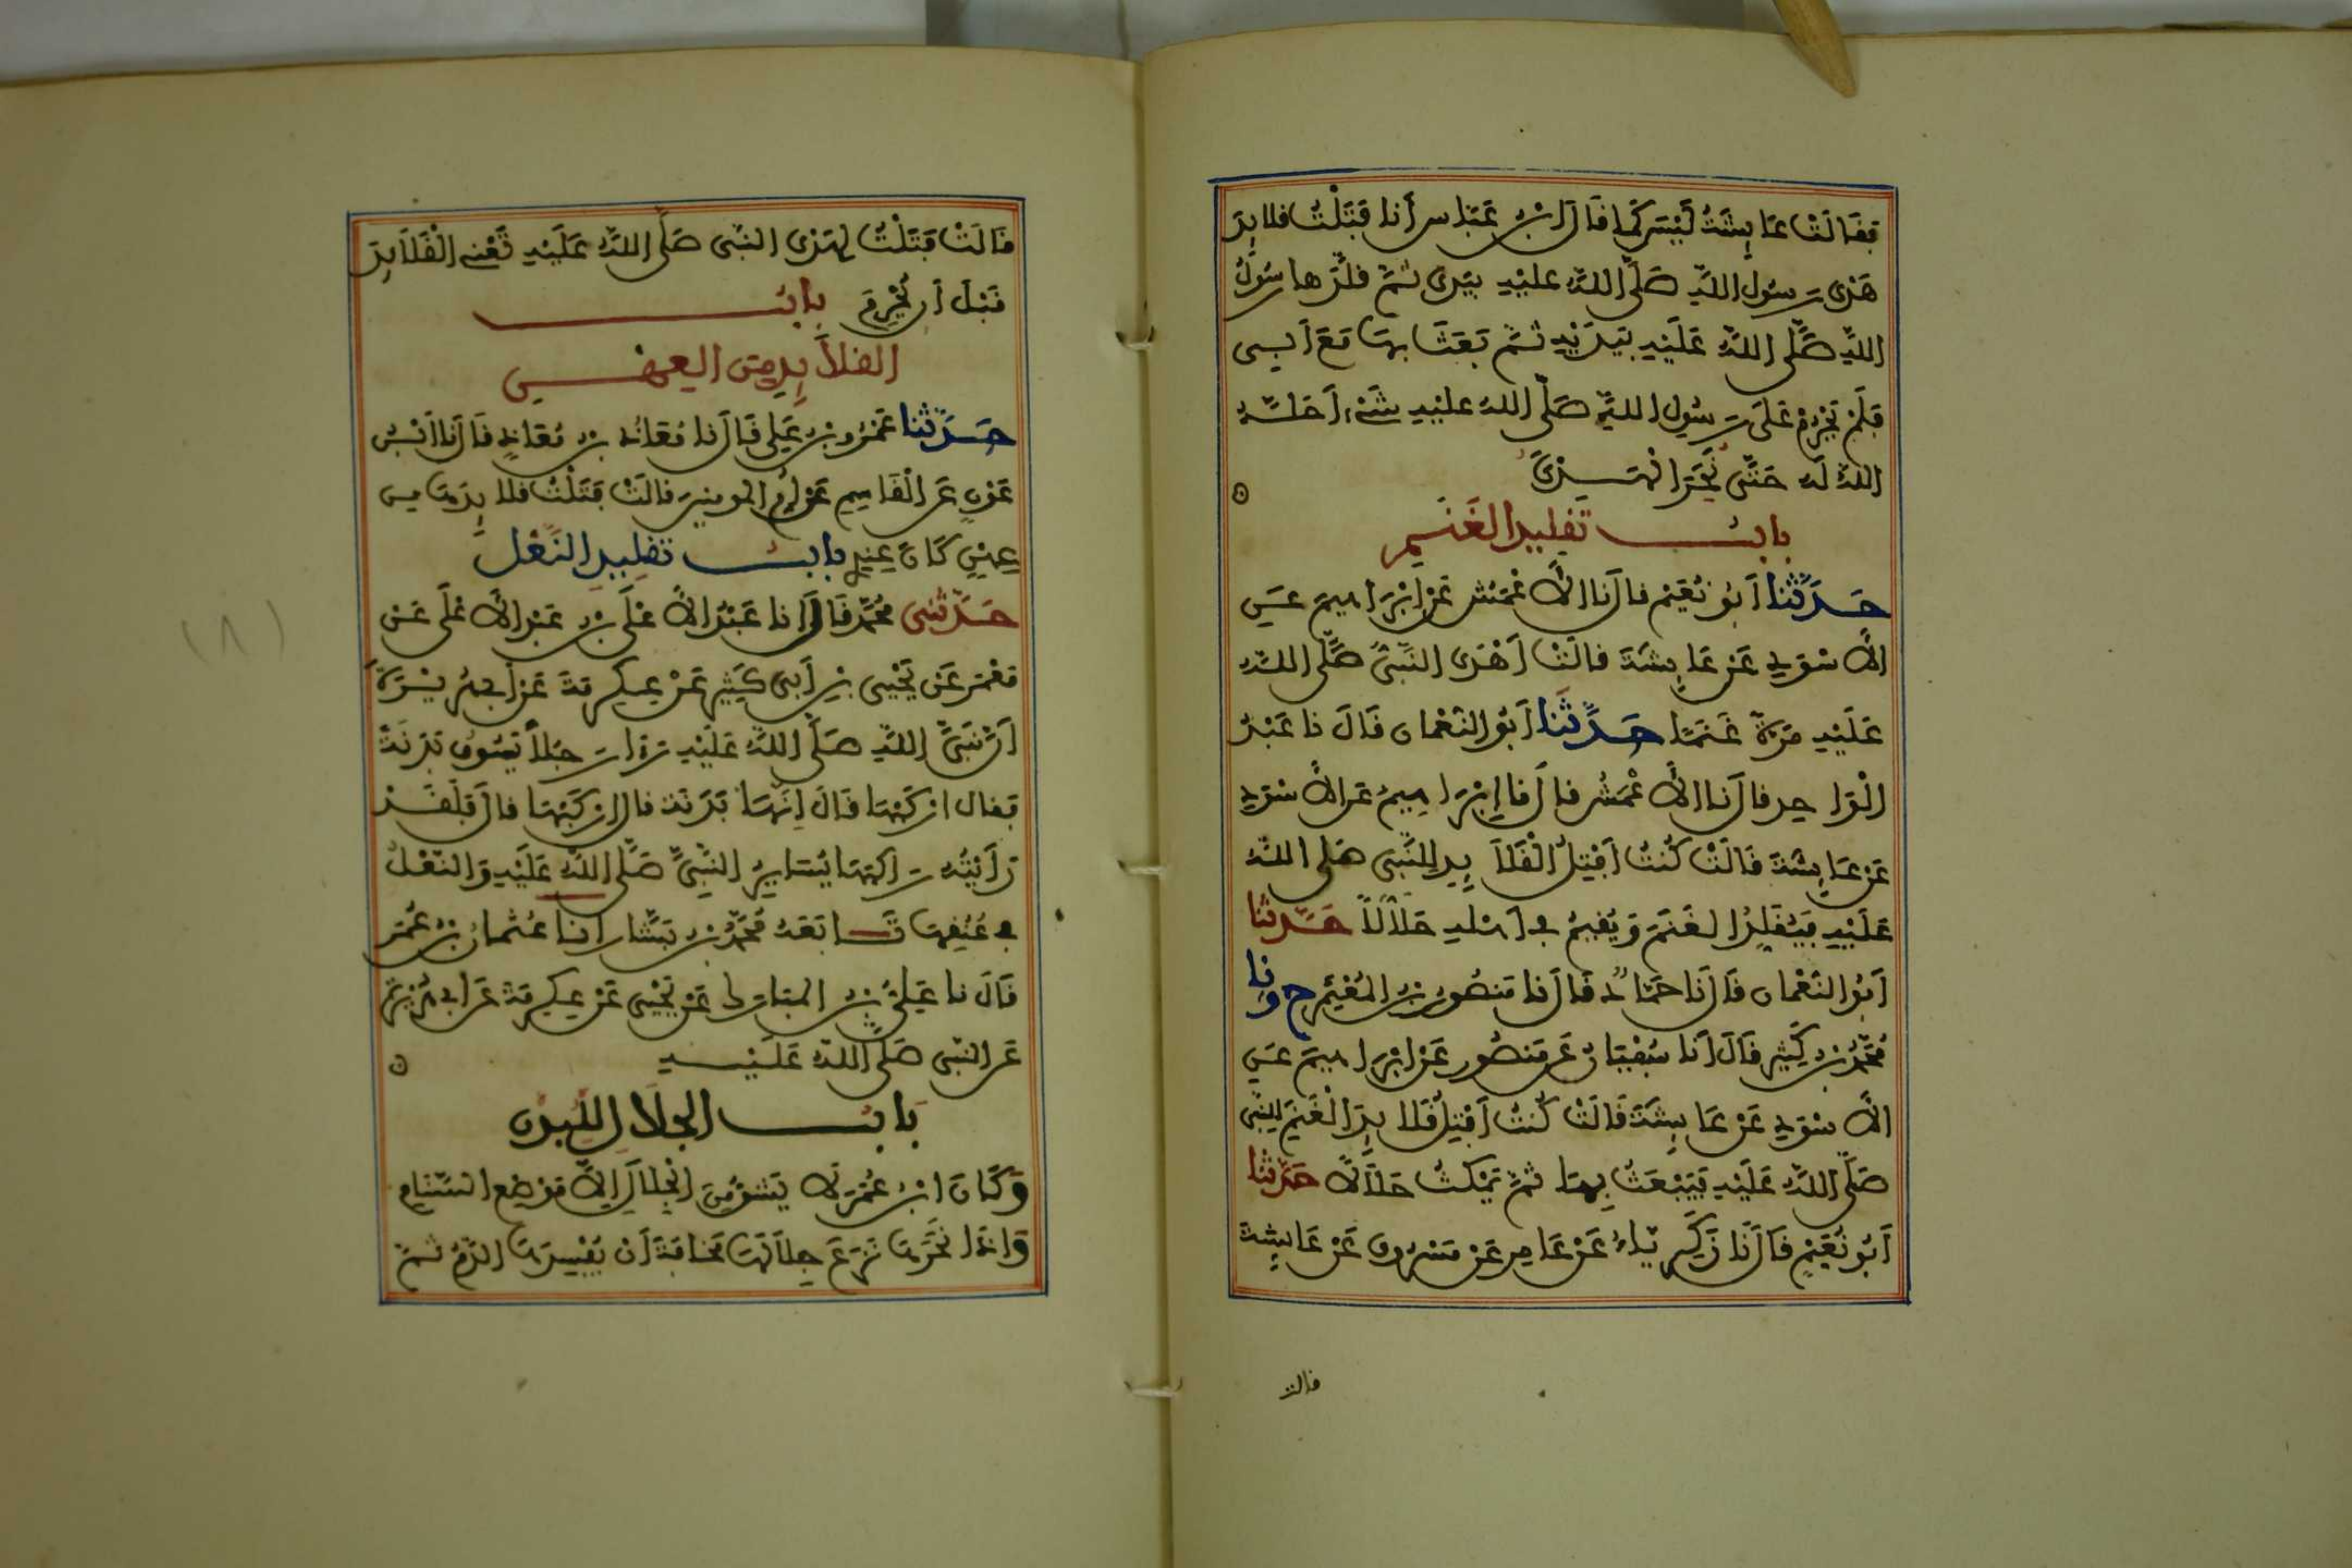 فَقَالَتْ عَائِشَةُ لَيْسَ كَمَا قَالَ ابْنُ عَبَّاسٍ أَنَا فَتَلْتُ قلائِدَ
هَدْىِ رَسُولِ اللَّهِ صَلَّى اللَّهُ عَلَيْهِ بِيَدِى ثُمَّ قَلَّدَها رَسُولُ
اللَّهِ صَلَّى اللَّهُ عَلَيْهِ بِيَدَيْهِ ثُمَّ بَعَثَ بِهَا مَعَ أَبِي
فَلَمْ يَحْرُمْ عَلَى رَسُولِ اللَّهِ صَلَّى اللَّهُ عَلَيْهِ شَىْءٌ أَحَلَّهُ
اللَّهُ لَهُ حَتَّى نُحِرَ الْهَدْىُ
بابُ تَقْلِيدِ الْغَنَمِ
حَدَّثَنا أَبُو نُعَيْمٍ قَالَ نَا الأَعْمَشُ عَنْ إِبْرَاهِيمَ عَنِ
الأَسْوَدِ عَنْ عَائِشَةَ قَالَتْ أَهْدَى النَّبِيُّ صَلَّى اللَّهُ
عَلَيْهِ مَرَّةً غَنَمًا حَدَّثَنا أَبُو النُّعْمَانِ قَالَ نا عَبْدُ
الْوَاحِدِ قَالَ نَا الأَعْمَشُ قَالَ نَا إِبْرَاهِيمُ عَنِ الأَسْوَدِ
عَنْ عَائِشَةَ قَالَتْ كُنْتُ أَفْتِلُ الْقَلَائِدَ لِلنَّبِيِّ صَلَّى اللَّهُ
عَلَيْهِ فَيُقَلِّدُ الْغَنَمَ وَيُقِيمُ فِي أَهْلِهِ حَلَالًا حَدَّثَنا
أَبُو النُّعْمَانِ قَالَ نَا حَمَّادٌ قَالَ نَا مَنْصُورُ بْنُ الْمُعْتَمِرِ ح وَنا
مُحَمَّدُ بْنُ كَثِيرٍ قَالَ أَنَا سُفْيَانُ عَنْ مَنْصُورٍ عَنْ إِبْرَاهِيمَ عَنِ
الأَسْوَدِ عَنْ عَائِشَةَ قَالَتْ كُنْتُ أَفْتِلُ قَلائِدَ الْغَنَمِ لِلنَّبِيِّ
صَلَّى اللَّهُ عَلَيْهِ فَيَبْعَثُ بِهَا ثُمَّ يَمْكُثُ حَلَالًا حَدَّثَنا
أَبُو نُعَيْمٍ قَالَ نَا زَكَرِيَّاءُ عَنْ عَامِرٍ عَنْ مَسْرُوقٍ عَنْ عَائِشَةَ
قالت
قَالَتْ فَتَلْتُ لِهَدْىِ النَّبِىِّ صَلَّى اللَّهُ عَلَيْهِ تَعْنِي الْقَلَائِدَ
قَبْلَ أَنْ يُحْرِمَ بابُ
القلَائِدِ مِنَ الْعِهْنِ
حَدَّثَنا عَمْرُو بْنُ عَلِيٍّ قَالَ نَا مُعَاذُ بْنُ مُعَاذٍ قَالَ نَا ابْنُ
عَوْنٍ عَنِ الْقَاسِمِ عَنْ أُمِّ الْمُومِنِينَ قَالَتْ فَتَلْتُ قَلائِدَهَا مِنْ
عِهْنٍ كَانَ عِنْدِي بابُ تَقْلِيدِ النَّعْلِ
حَدَّثَنِى مُحَمَّدٌ قَالَ أَنَا عَبْدُ الأَعْلَى بْنُ عَبْدِ الأَعْلَى عَنْ
مَعْمَرٍ عَنْ يَحْيَى بْنِ أَبِي كَثِيرٍ عَنْ عِكْرِمَةَ عَنْ أَبِي هُرَيْرَةَ
أَنَّ نَبِيَّ اللَّهِ صَلَّى اللَّهُ عَلَيْهِ رَأَى رَجُلًا يَسُوقُ بَدَنَةً
فَقَالَ ارْكَبْهَا قَالَ إِنَّهَا بَدَنَةٌ قَالَ ارْكَبْهَا قَالَ فَلَقَدْ
رَأَيْتُهُ رَاكِبَهَا يُسَايِرُ النَّبِيَّ صَلَّى اللَّهُ عَلَيْهِ وَالنَّعْلُ
فِي عُنُقِهَا تَابَعَهُ مُحَمَّدُ بْنُ بَشَّارٍ أنَا عُثْمَانُ بْنُ عُمَرَ
قَالَ نا عَلِيُّ بْنُ الْمُبَارَكِ عَنْ يَحْيَى عَنْ عِكْرِمَةَ عَنْ أَبِي هُرَيْرَةَ
عَنِ النَّبِيِّ صَلَّى اللَّهُ عَلَيْهِ
بَابُ الْجِلَالِ لِلْبُدْنِ
وَكَانَ ابْنُ عُمَرَ لَا يَشُقُّ مِنَ الْجِلَالِ إِلَّا مَوْضِعَ السَّنَامِ
وَإِذَا نَحَرَهَا نَزَعَ جِلَالَهَا مَخَافَةَ أَنْ يُفْسِدَهَا الدَّمُ ثُمَّ
(٨)